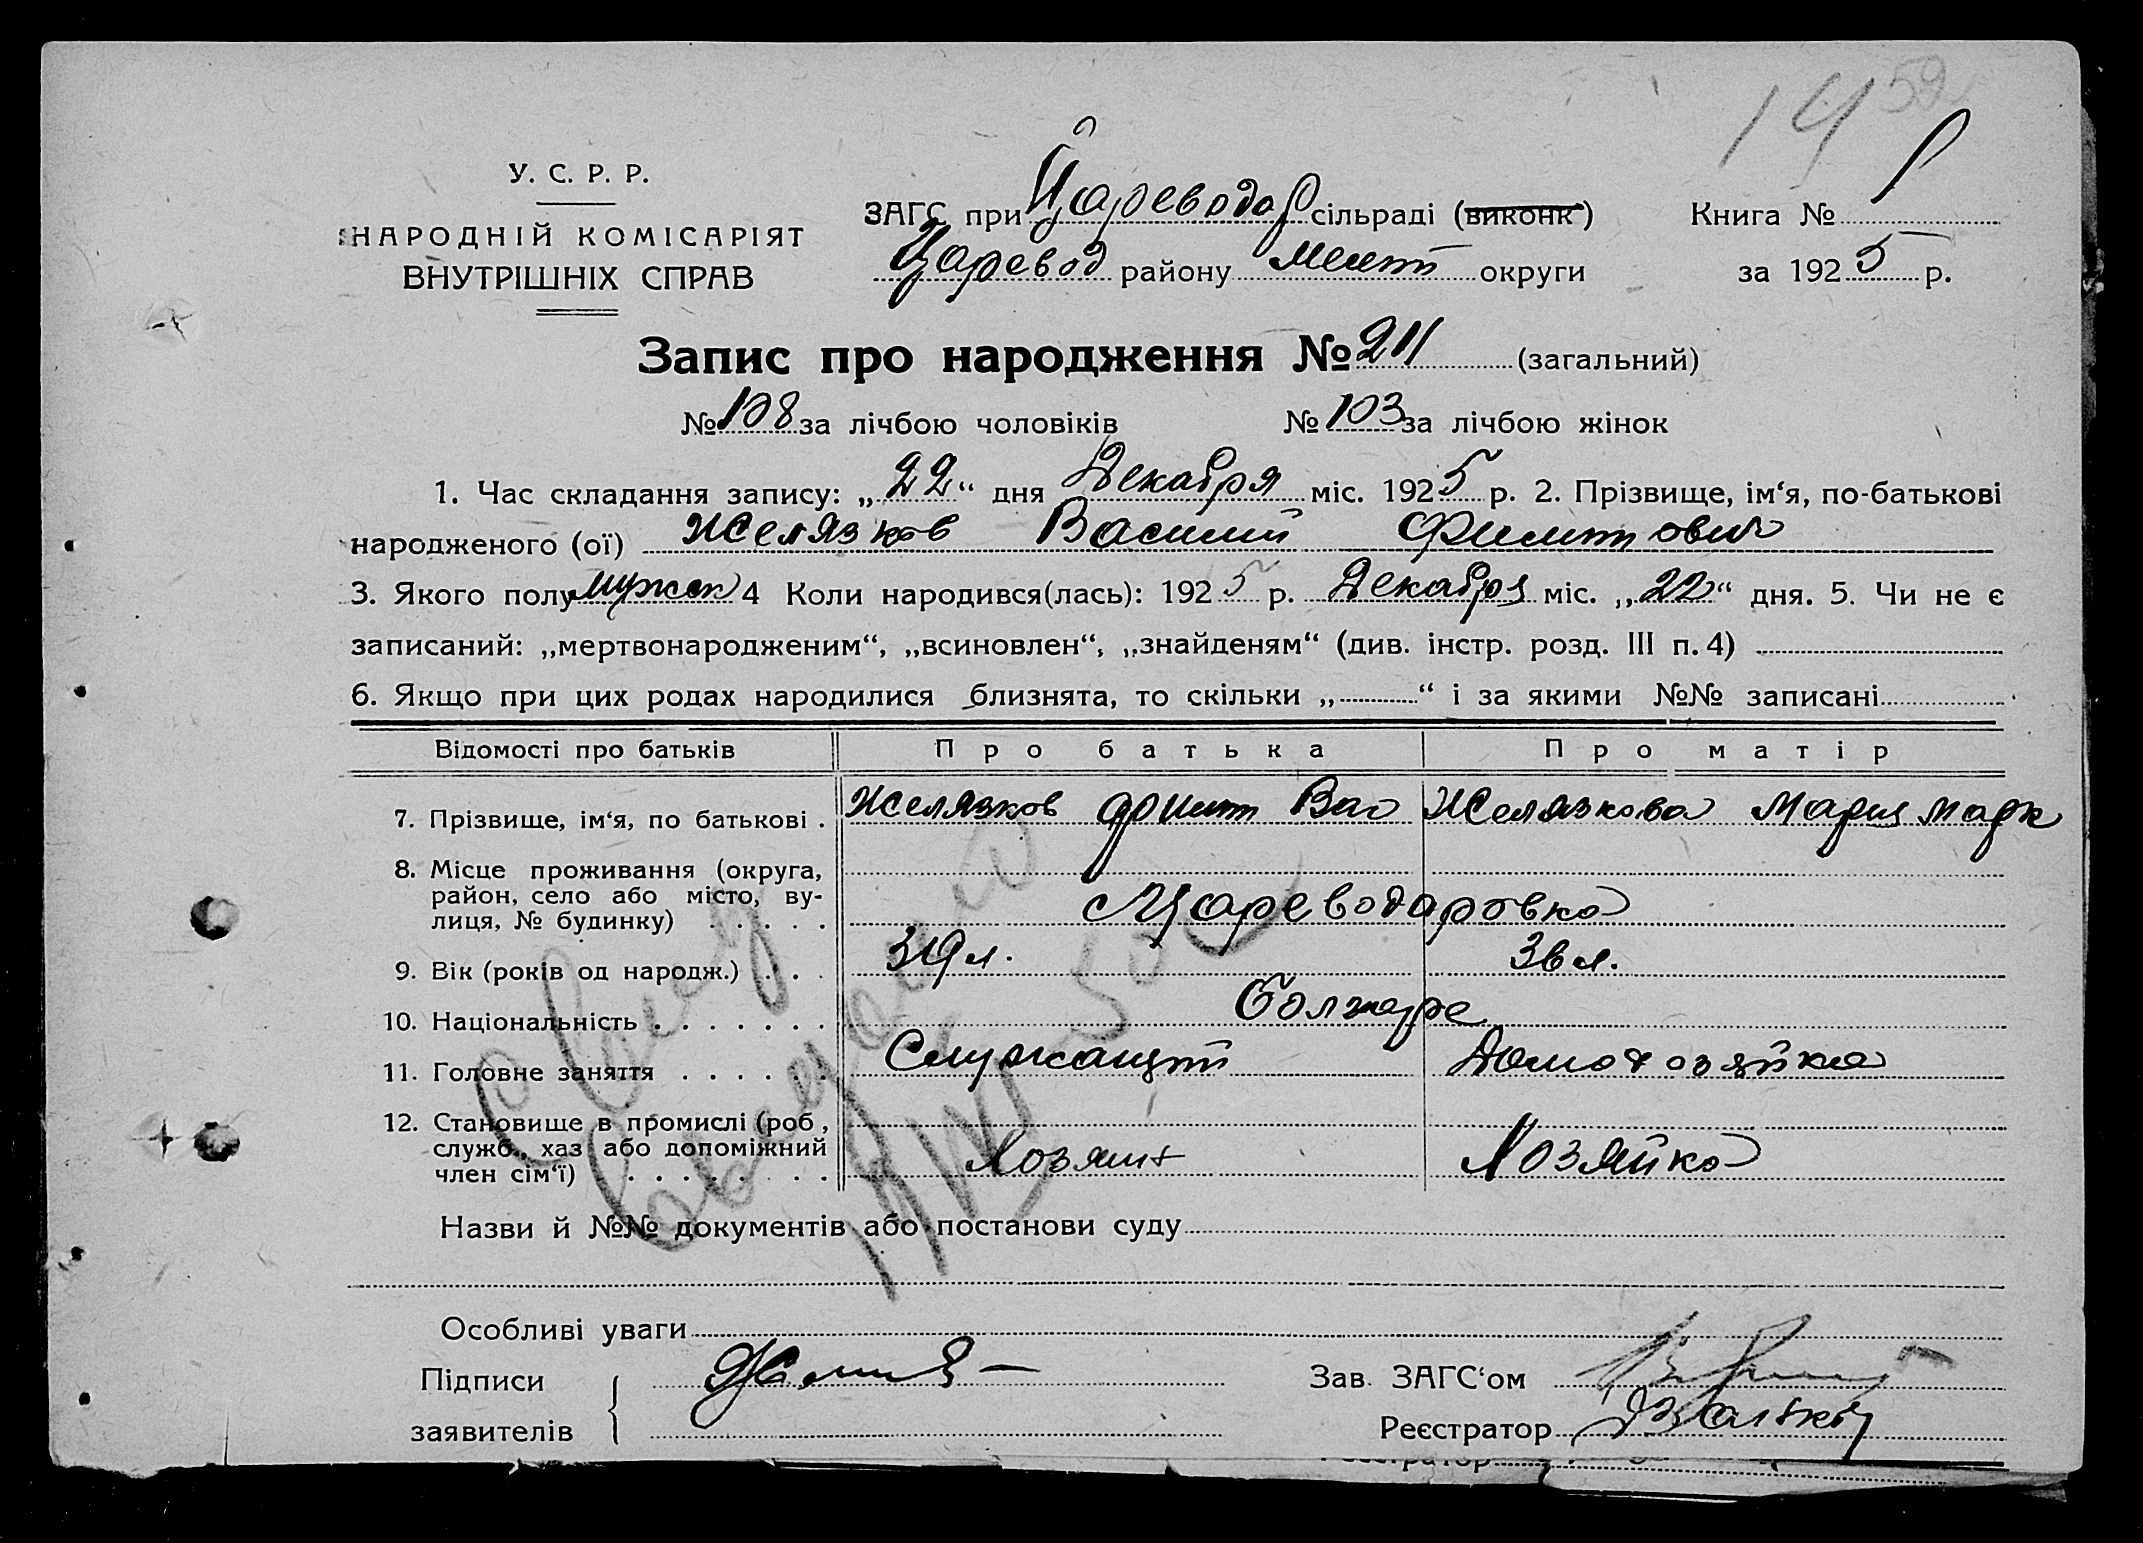 14 59
У. С. Р. Р.
НАРОДНІЙ КОМІСАРІЯТ
ВНУТРІШНІХ СПРАВ
ЗАГС при Цареводар сільраді (виконк) Книга № 1
Царевод району Мелит округи за 1925 р.
Запис про народження № 211 (загальний)
№ 108 за лічбою чоловіків № 103 за лічбою жінок
1. Час складання запису: „22“ дня Декабря міс. 1925 р. 2. Прізвище, ім‘я, по-батькові
народженого (ої) Желязков Василий Филиппович
3. Якого полу мужск 4 Коли народився(лась): 1925 р. Декабря міс. „22“ дня. 5. Чи не є
записаний: „мертвонародженим“, „всиновлен“, „знайденям“ (див. інстр. розд. III п. 4)
6. Якщо при цих родах народилися близнята, то скільки „ “ і за якими №№ записані
Відомості про батьків Про батька Про матір
7. Прізвище, ім‘я, по батькові . Желязков Филип Вас Желязкова Мария Марк
8. Місце проживання (округа,
район, село або місто, ву-
лиця, № будинку) . . . . . Цареводаровка
9. Вік (років од народж.) . . . 39 л. 36 л.
10. Національність . . . . . . . Болгаре
11. Головне заняття . . . . . . Служащий Домохозяйка
12. Становище в промислі (роб,
служб., хаз або допоміжний
член сім‘ї) . . . . . . . . Хозяин Хозяйка
Назви й №№ документів або постанови суду
Особливі уваги
Підписи
заявителів
Зав. ЗАГС‘ом
Реєстратор
Реєстратор